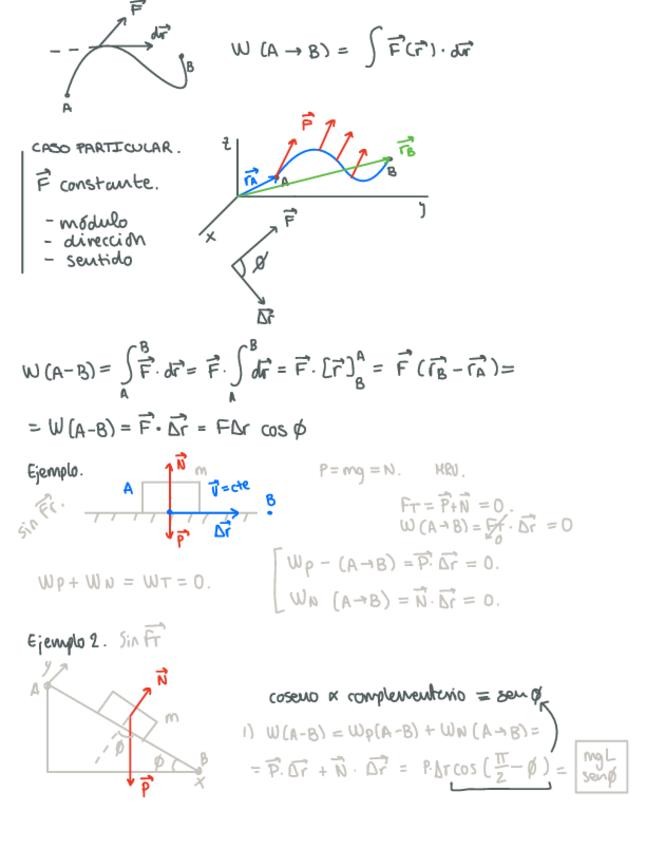 F⃗
dr⃗
A
B
W (A → B) = ∫ F⃗(r⃗) · dr⃗
CASO PARTICULAR.
F⃗ constante.
- módulo
- dirección
- sentido
z
F⃗
r⃗A
A
r⃗B
B
y
x
F⃗
ϕ
Δr⃗
W(A-B) = ∫_A^B F⃗ · dr⃗ = F⃗ · ∫_A^B dr⃗ = F⃗ · [r⃗]^A_B = F⃗ (r⃗B - r⃗A) =
= W(A-B) = F⃗ · Δr⃗ = FΔr cos ϕ
Ejemplo.
sin Fr⃗.
N⃗
m
A
v⃗=cte
B
Δr⃗
P⃗
P = mg = N. MRU.
F_T = P⃗ + N⃗ = 0.
W(A→B) = F_T⃗ · Δr⃗ = 0
0
W_P + W_N = W_T = 0.
W_P - (A→B) = P⃗ · Δr⃗ = 0.
W_N (A→B) = N⃗ · Δr⃗ = 0.
Ejemplo 2. Sin Fr⃗
y
A
N⃗
m
ϕ
ϕ
B
x
P⃗
coseno α complementerio = sen ϕ
1) W(A-B) = W_P(A-B) + W_N (A→B) =
= P⃗ · Δr⃗ + N⃗ · Δr⃗ = P·Δr cos (π/2 - ϕ) = mgL senϕ